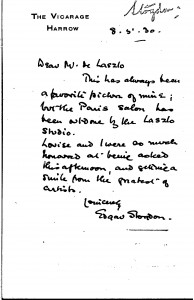 Stogdon
THE VICARAGE
HARROW
8.5.30.
Dear Mr. de Laszlo
This has always been
a favorite picture of mine;
but the Paris Salon has
been outdone by the Laszlo
Studio.
Louise and I were so much
honoured at being asked
this afternoon, and getting a
smile from the greatest of
artists.
Edgar Stogdon